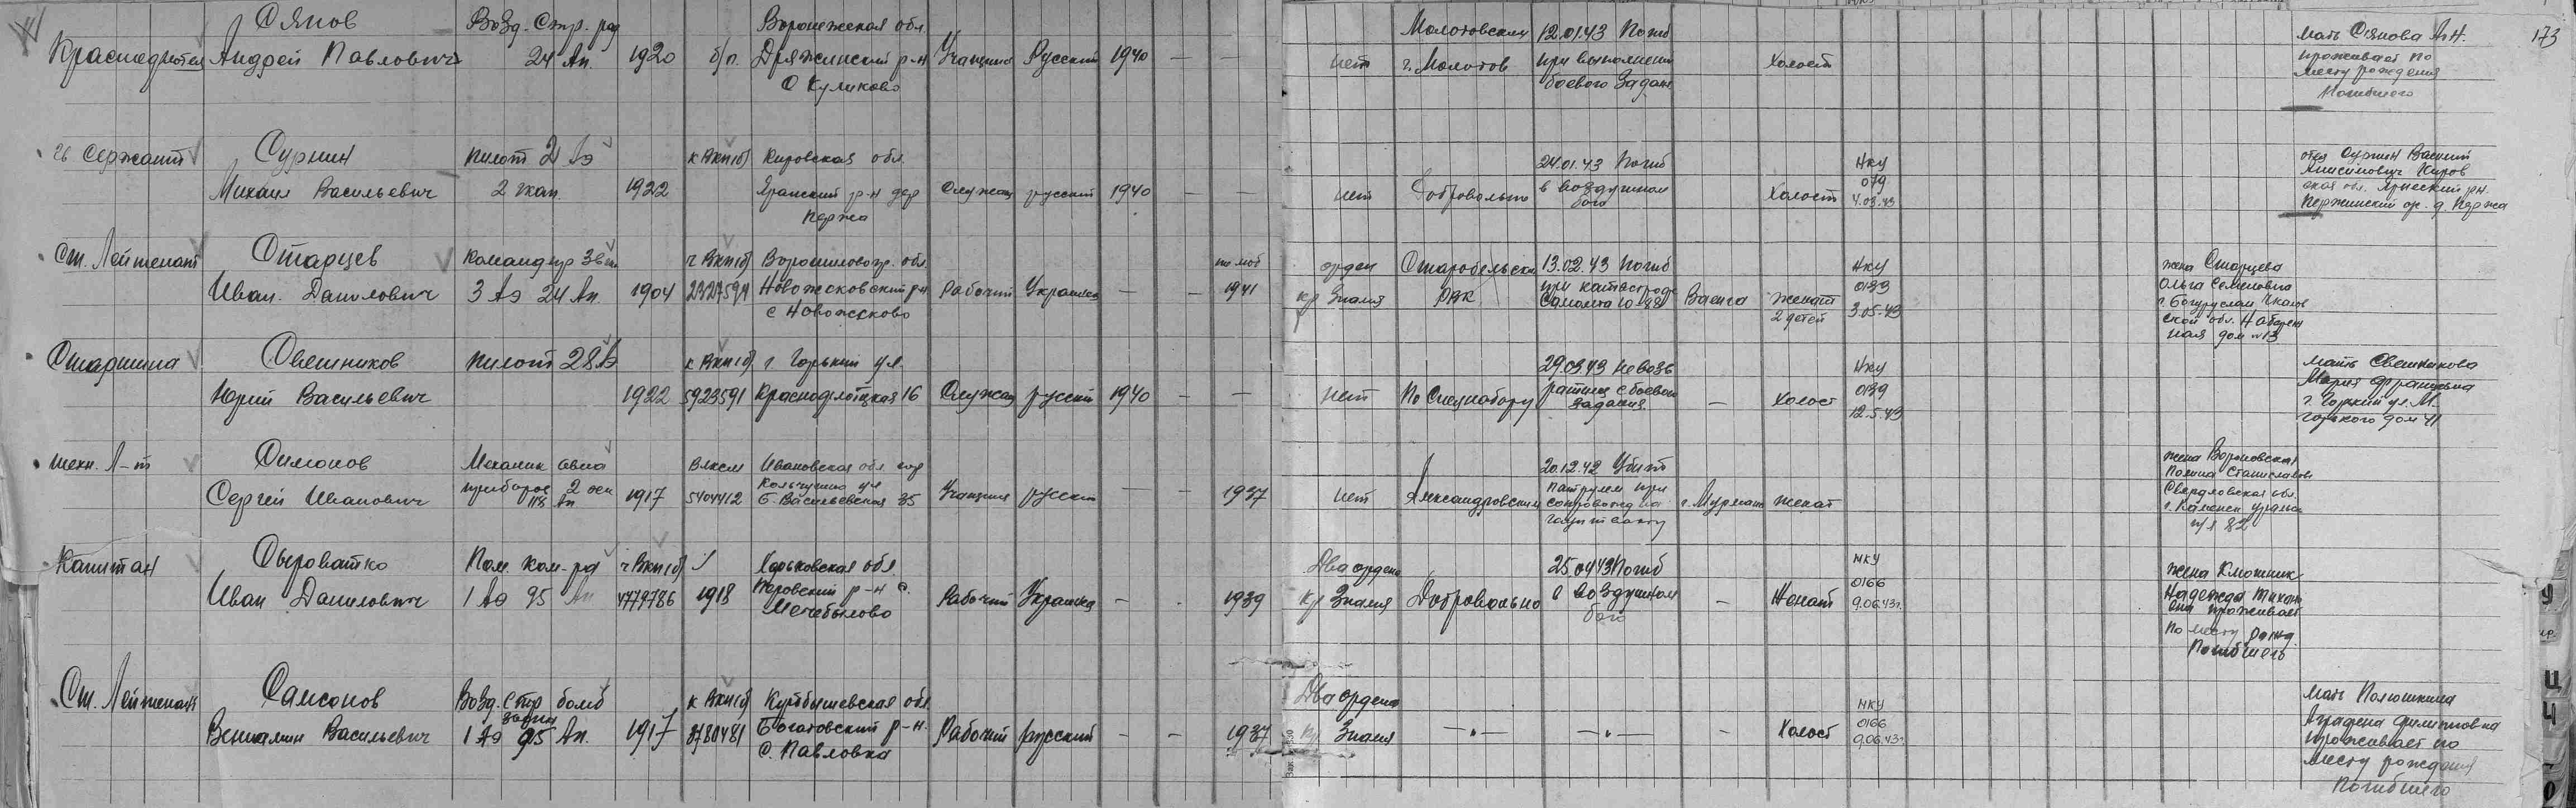 173
Краснофлотец Сяпов Андрей Павлович Возд. Стр. рад 24 Ап. 1920 б/п. Воронежская обл. р-н С Куликово Учащийся Русский 1940 — —
нет Молотовский г. Молотов 12.01.43 Погиб при выполнении боевого задан Холост
мать Сяпова А.Н. проживает по месту рождения Погибшего
Сержант Сурнин Михаил Васильевич пилот 2 Аэ 2 гкап 1922 к ВКП(б) Кировская обл. Яранский р-н дер Пержа Служащ русский 1940 — —
нет Добровольно 24.01.43 Погиб в воздушном бою Холост НКУ 079 4.03.43
отец Сурнин Василий Анисимович Киров ская обл. Яранский рн. Пержинский ср. д. Пержа
Ст. Лейтенант Старцев Иван. Данилович Командир Звен 3 Аэ 24 Ап. 1904 ч ВКП(б) 2327594 Ворошиловогр. обл. Новопсковский рн с Новопсково Рабочий Украинец — — по моб 1941
орден кр Знамя Старобельским РВК 13.02.43 Погиб при катастрофе самолета Ю-88 Ваенга женат 2 детей НКУ 0133 3.05.43
жена Старцева Ольга Семеновна г. Бугуруслан Чкалов ской обл. Набереж ная дом №13
Старшина Свешников Юрий Васильевич пилот 28 Аэ 1922 к ВКП(б) 5923591 г. Горький ул. Краснофлотская 16 Служащ русский 1940 — —
нет По Спецнабору 29.03.43 не возв ратился с боевого задания — холост НКУ 0139 12.5.43
мать Свешникова Мария Францевна г. Горький ул. М. Горького дом 41
техн. Л-т Симонов Сергей Иванович Механик авиа приборов 2 118 Ап 1917 Влксм 5404412 Ивановская обл. гор Кольчугино ул Б. Васильевская 35 Учащийся русский — — 1937
нет Александровским 20.12.42 Убит патрулем при сопровожд на гауптвахту г. Мурманск женат
жена Вороновская Полина Станиславов Свердловская обл. г. Каменск уральс п/я 82
Капитан Сыроватко Иван Данилович Пом. ком-ра 1 Аэ 95 Ап ч ВКП(б) 4779786 1918 Харьковская обл р-н с. Мечебылово Рабочий Украинец — . 1939
Два ордена кр Знамя Добровольно 25.04.43 Погиб в воздушном бою — Женат НКУ 0166 9.06.43г.
жена Клюжник Надежда Тихон она проживает по месту рожд. Погибшего
Ст. Лейтенант Самсонов Вениамин Васильевич Возд. Стр бомб 1 Аэ 95 Ап. 1917 к ВКП(б) 3780481 Куйбышевская обл. Богатовский р-н. С. Павловка Рабочий русский — — 1937
Два ордена кр. Знамя —"— —"— — Холост НКУ 0166 9.06.43г.
мать Полюшкина Аграфена Филипповна проживает по месту рождения Погибшего